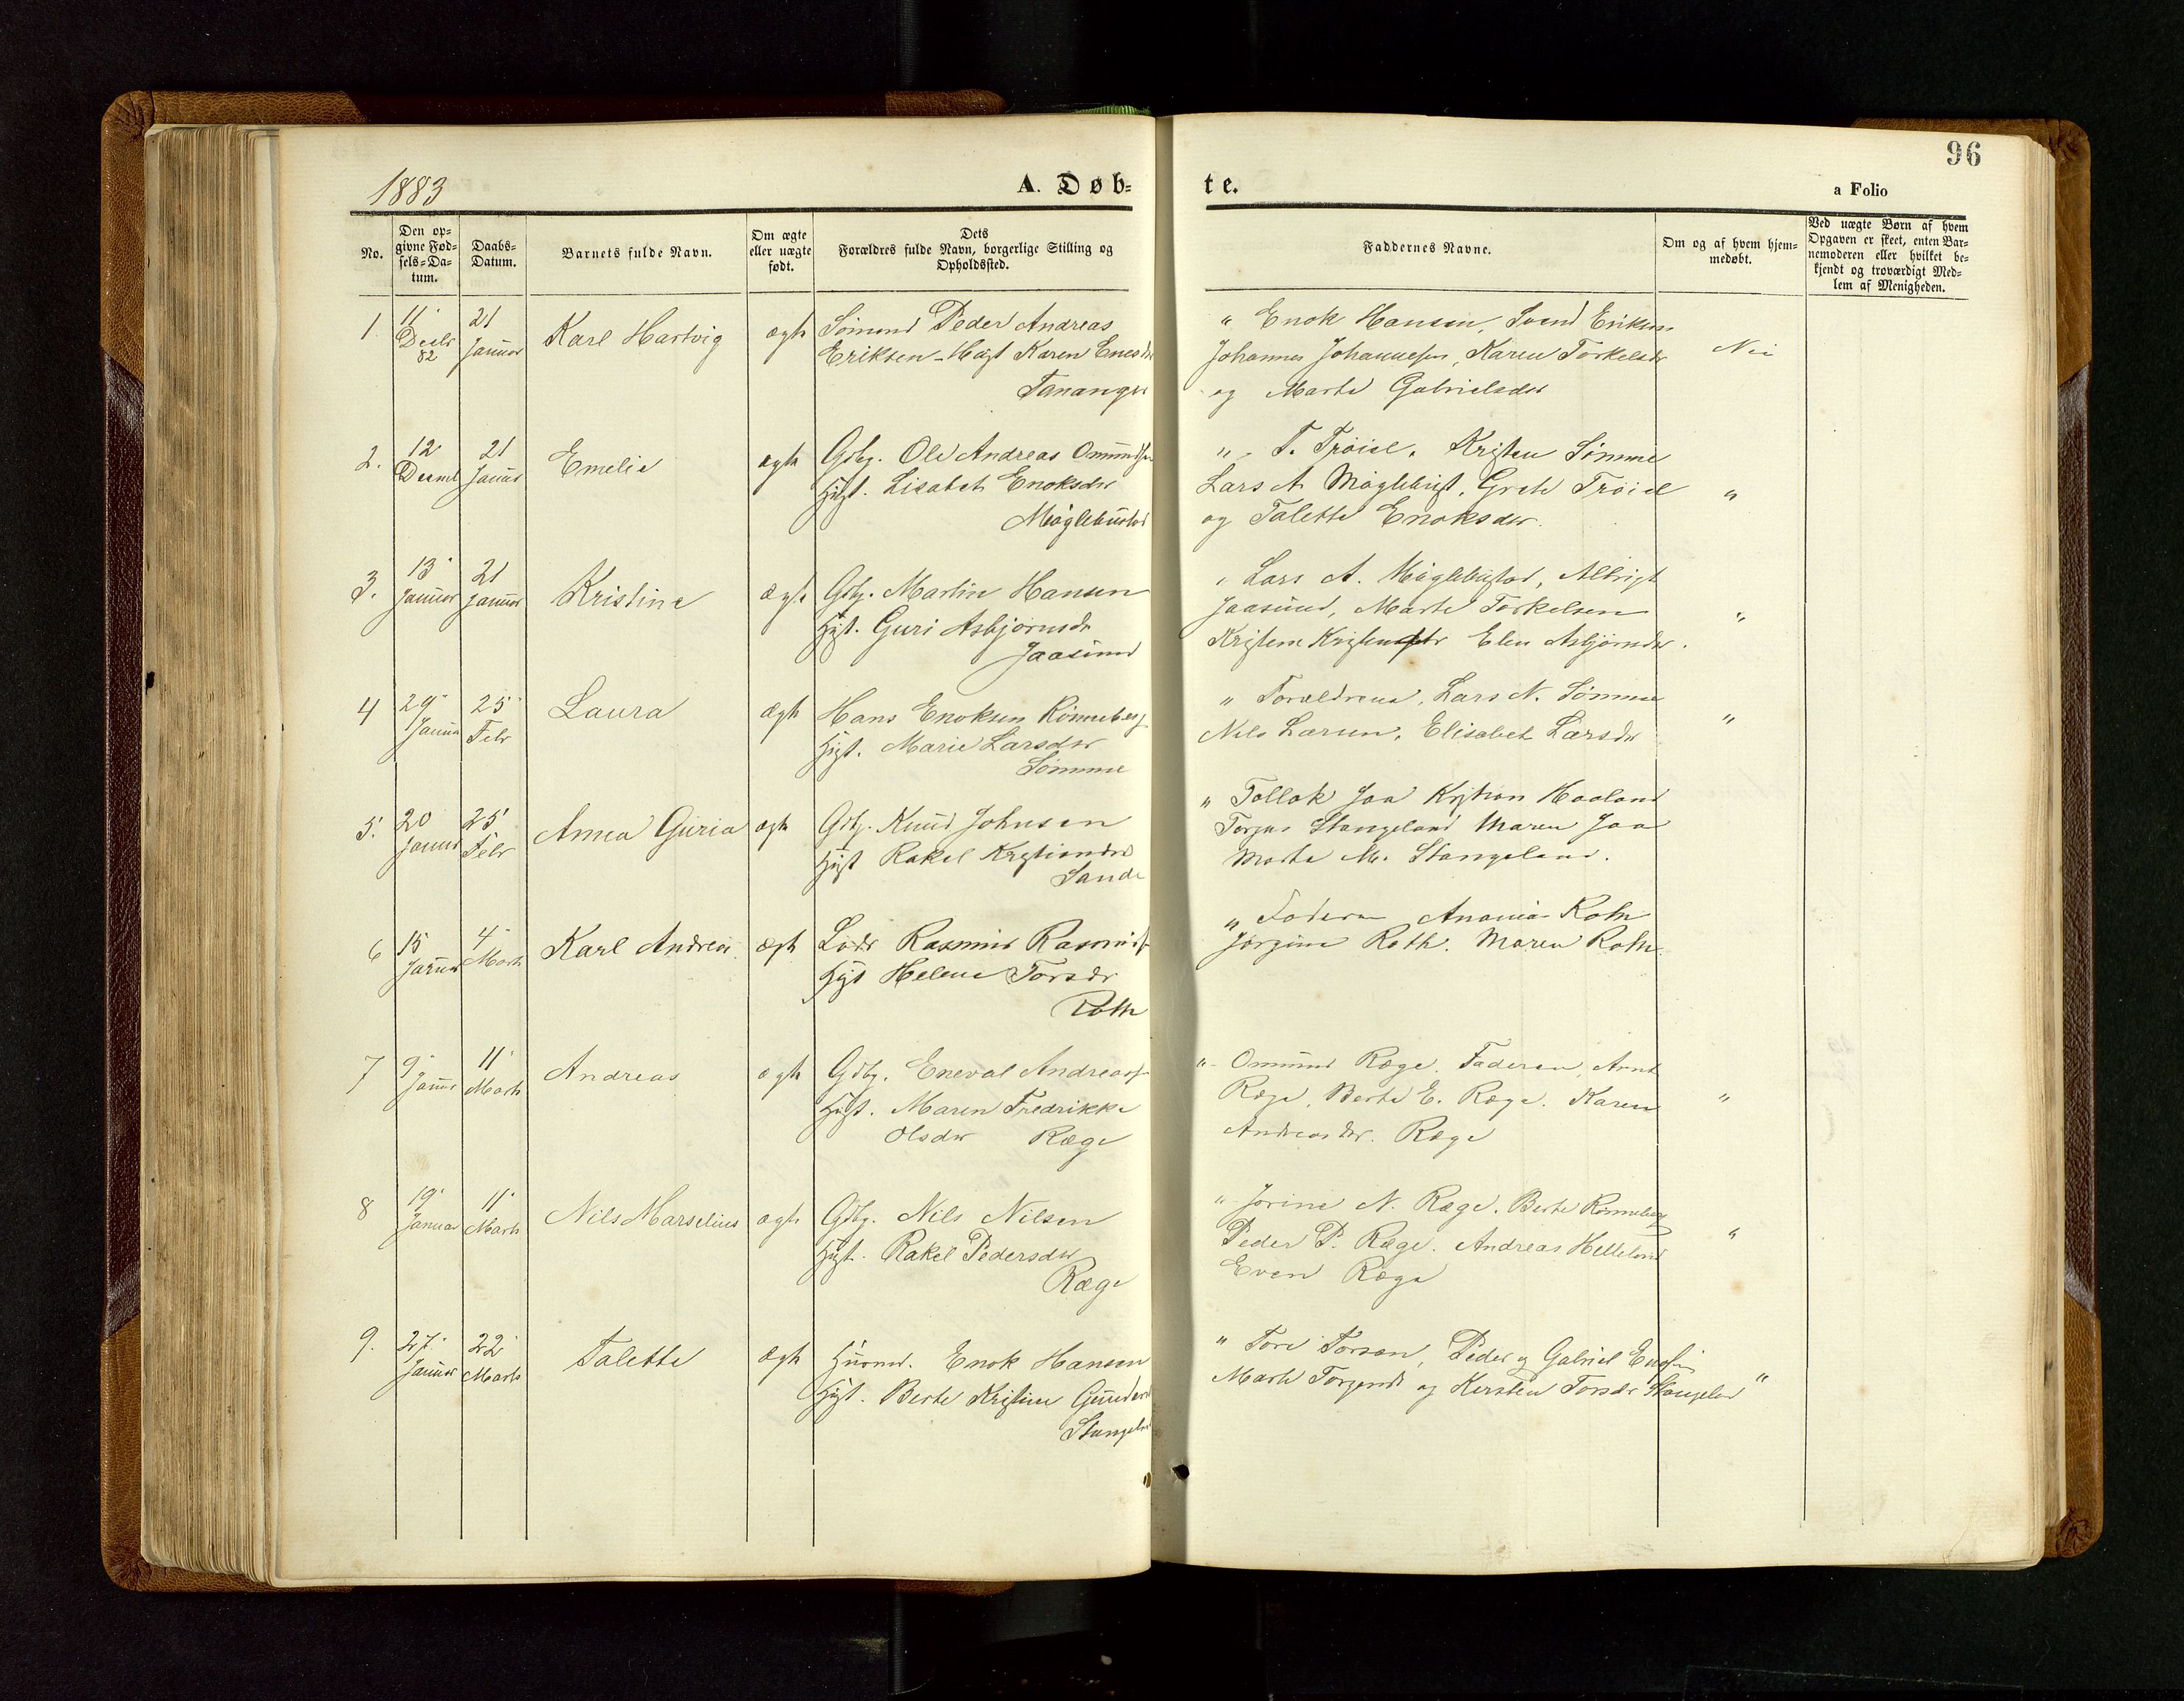 96
1883
A. Døb-
te.
a Folio
No.
Den op-
givne Fød-
sels-Da-
tum.
Daabs-
Datum.
Barnets fulde Navn.
Om ægte
eller uægte
født.
Dets
Forældres fulde Navn, borgerlige Stilling og
Opholdssted.
Faddernes Navne.
Om og af hvem hjem-
medøbt.
Ved uægte Børn af hvem
Opgaven er skeet, enten Bar-
nemoderen eller hvilket be-
kjendt og troværdigt Med-
lem af Menigheden.
1.
11
Decbr
82
21
Januar
Karl Hartvig
ægte
Sömand Peder Andreas
Eriksen - Karen
Tananger
" Enok Hansen, Svend Eriksen
Johannes Johannessen, Karen Torkelsdr
og Marte Gabrielsdr
Nei
2.
12
21
Januar
Emelie
ægte
Gbr. Ole Andreas
Hst. Lisabet Enoksdr
" T. Tröiel. Kristen Sömme
Lars A. Grete Tröiel
og Talette Enoksdr.
"
3.
13
Januar
21
Januar
Kristine
ægte
Gbr. Martin Hansen
Hst. Guri Asbjörnsdr
Jaasund
" Lars A.
Jaasund, Marte Torkelsen
Elen Asbjörnsdr.
"
4
29
Januar
25
Febr
Laura
ægte
Hans Enoksen Rönneberg
Hst. Marie Larsdr
Sömme
" Forældrene, Lars N. Sömme
Nils Larsen, Elisabet Larsdr
"
5.
20
Januar
25
Febr
Anna Guria
ægte
Gbr. Knud Johnsen
Hst Rakel Kristiansdr
Sande
" Tollak Joa Kristian Haaland
Torger Stangeland Maren Joa
Marta M. Stangeland.
6
15
Januar
4
Marts
Karl Andreas
ægte
Rasmus
Hst Helene Torsdr
Roth
" Faderen Roth
Jörgine Roth. Maren Roth.
7
9
Januar
11
Marts
Andreas
ægte
Gbr. Eneval
Hst. Maren Fredrikke
Olsdr Ræge
" Ommund Ræge. Faderen, Arnt
Ræge, Berte E. Ræge. Karen
Andreasdr. Ræge
"
8
19
Januar
11
Marts
Nils Marselius
ægte
Gbr. Nils Nilsen
Hst. Rakel Pedersdr
Ræge
" Jorine N. Ræge. Berte Rönneberg
Peder P. Ræge. Andreas Helleland
Even Ræge
"
9.
27
Januar
22
Marts
Talette
ægte
Enok Hansen
Hst. Berte Kristine
Stangeland
" Tore Torsen, Peder og Gabriel
Marte og Kirsten Torsdr Stangeland
"